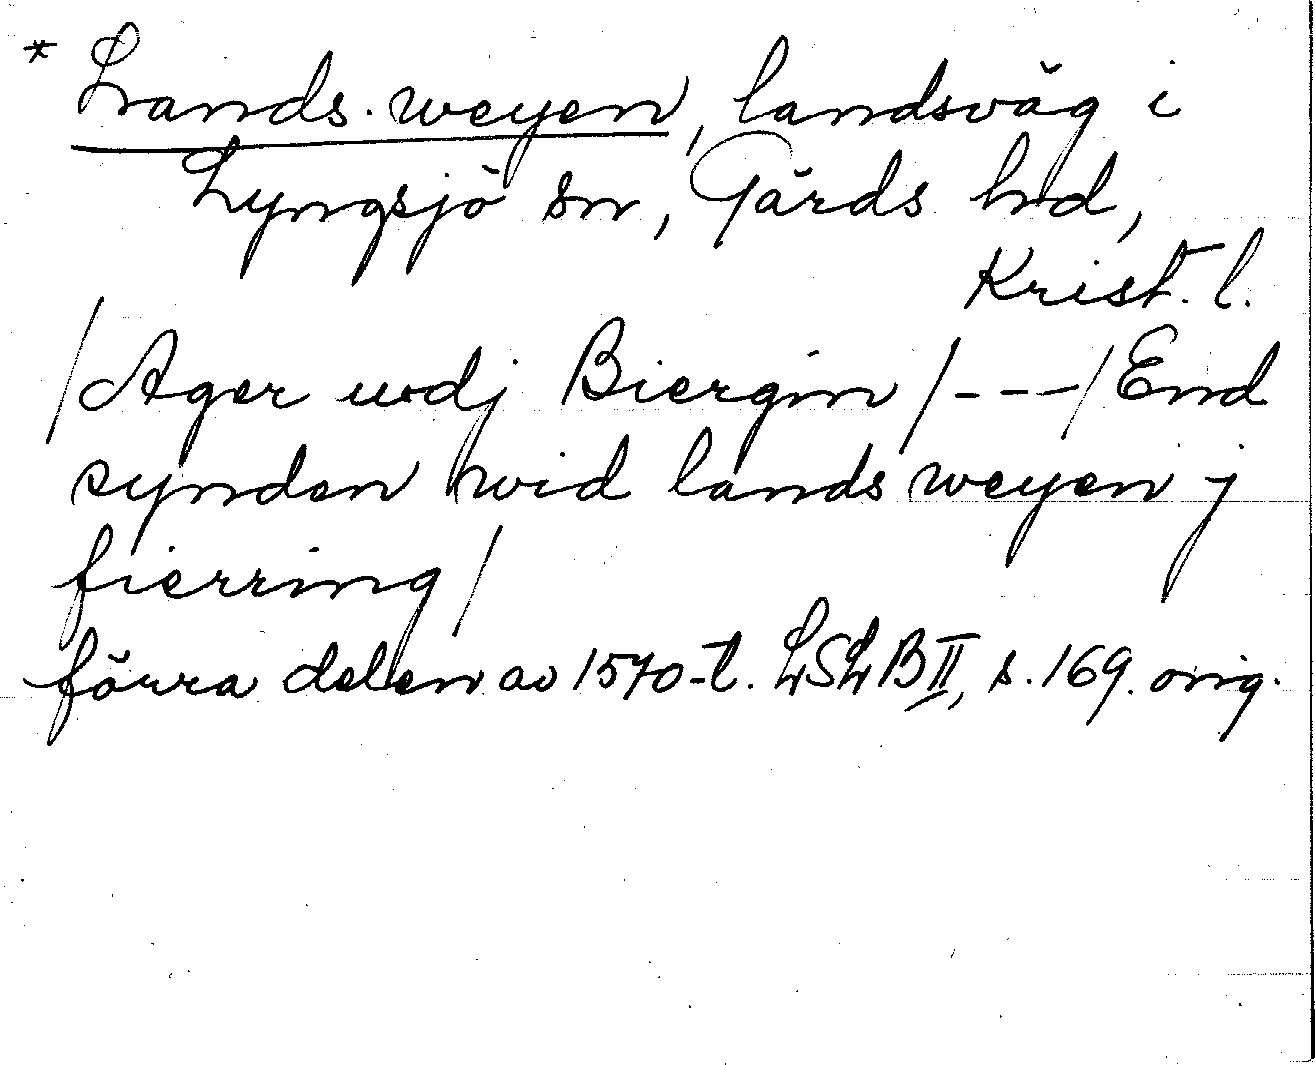 * Lands weyen, landsväg i
Lyngsjö sn, Gärds hd,
Krist. l.
/Ager wdj Biergin/---/End
synden hwid lands weyen j
fierring/
förra delen av 1570-t. LSLB II, s. 169. orig.